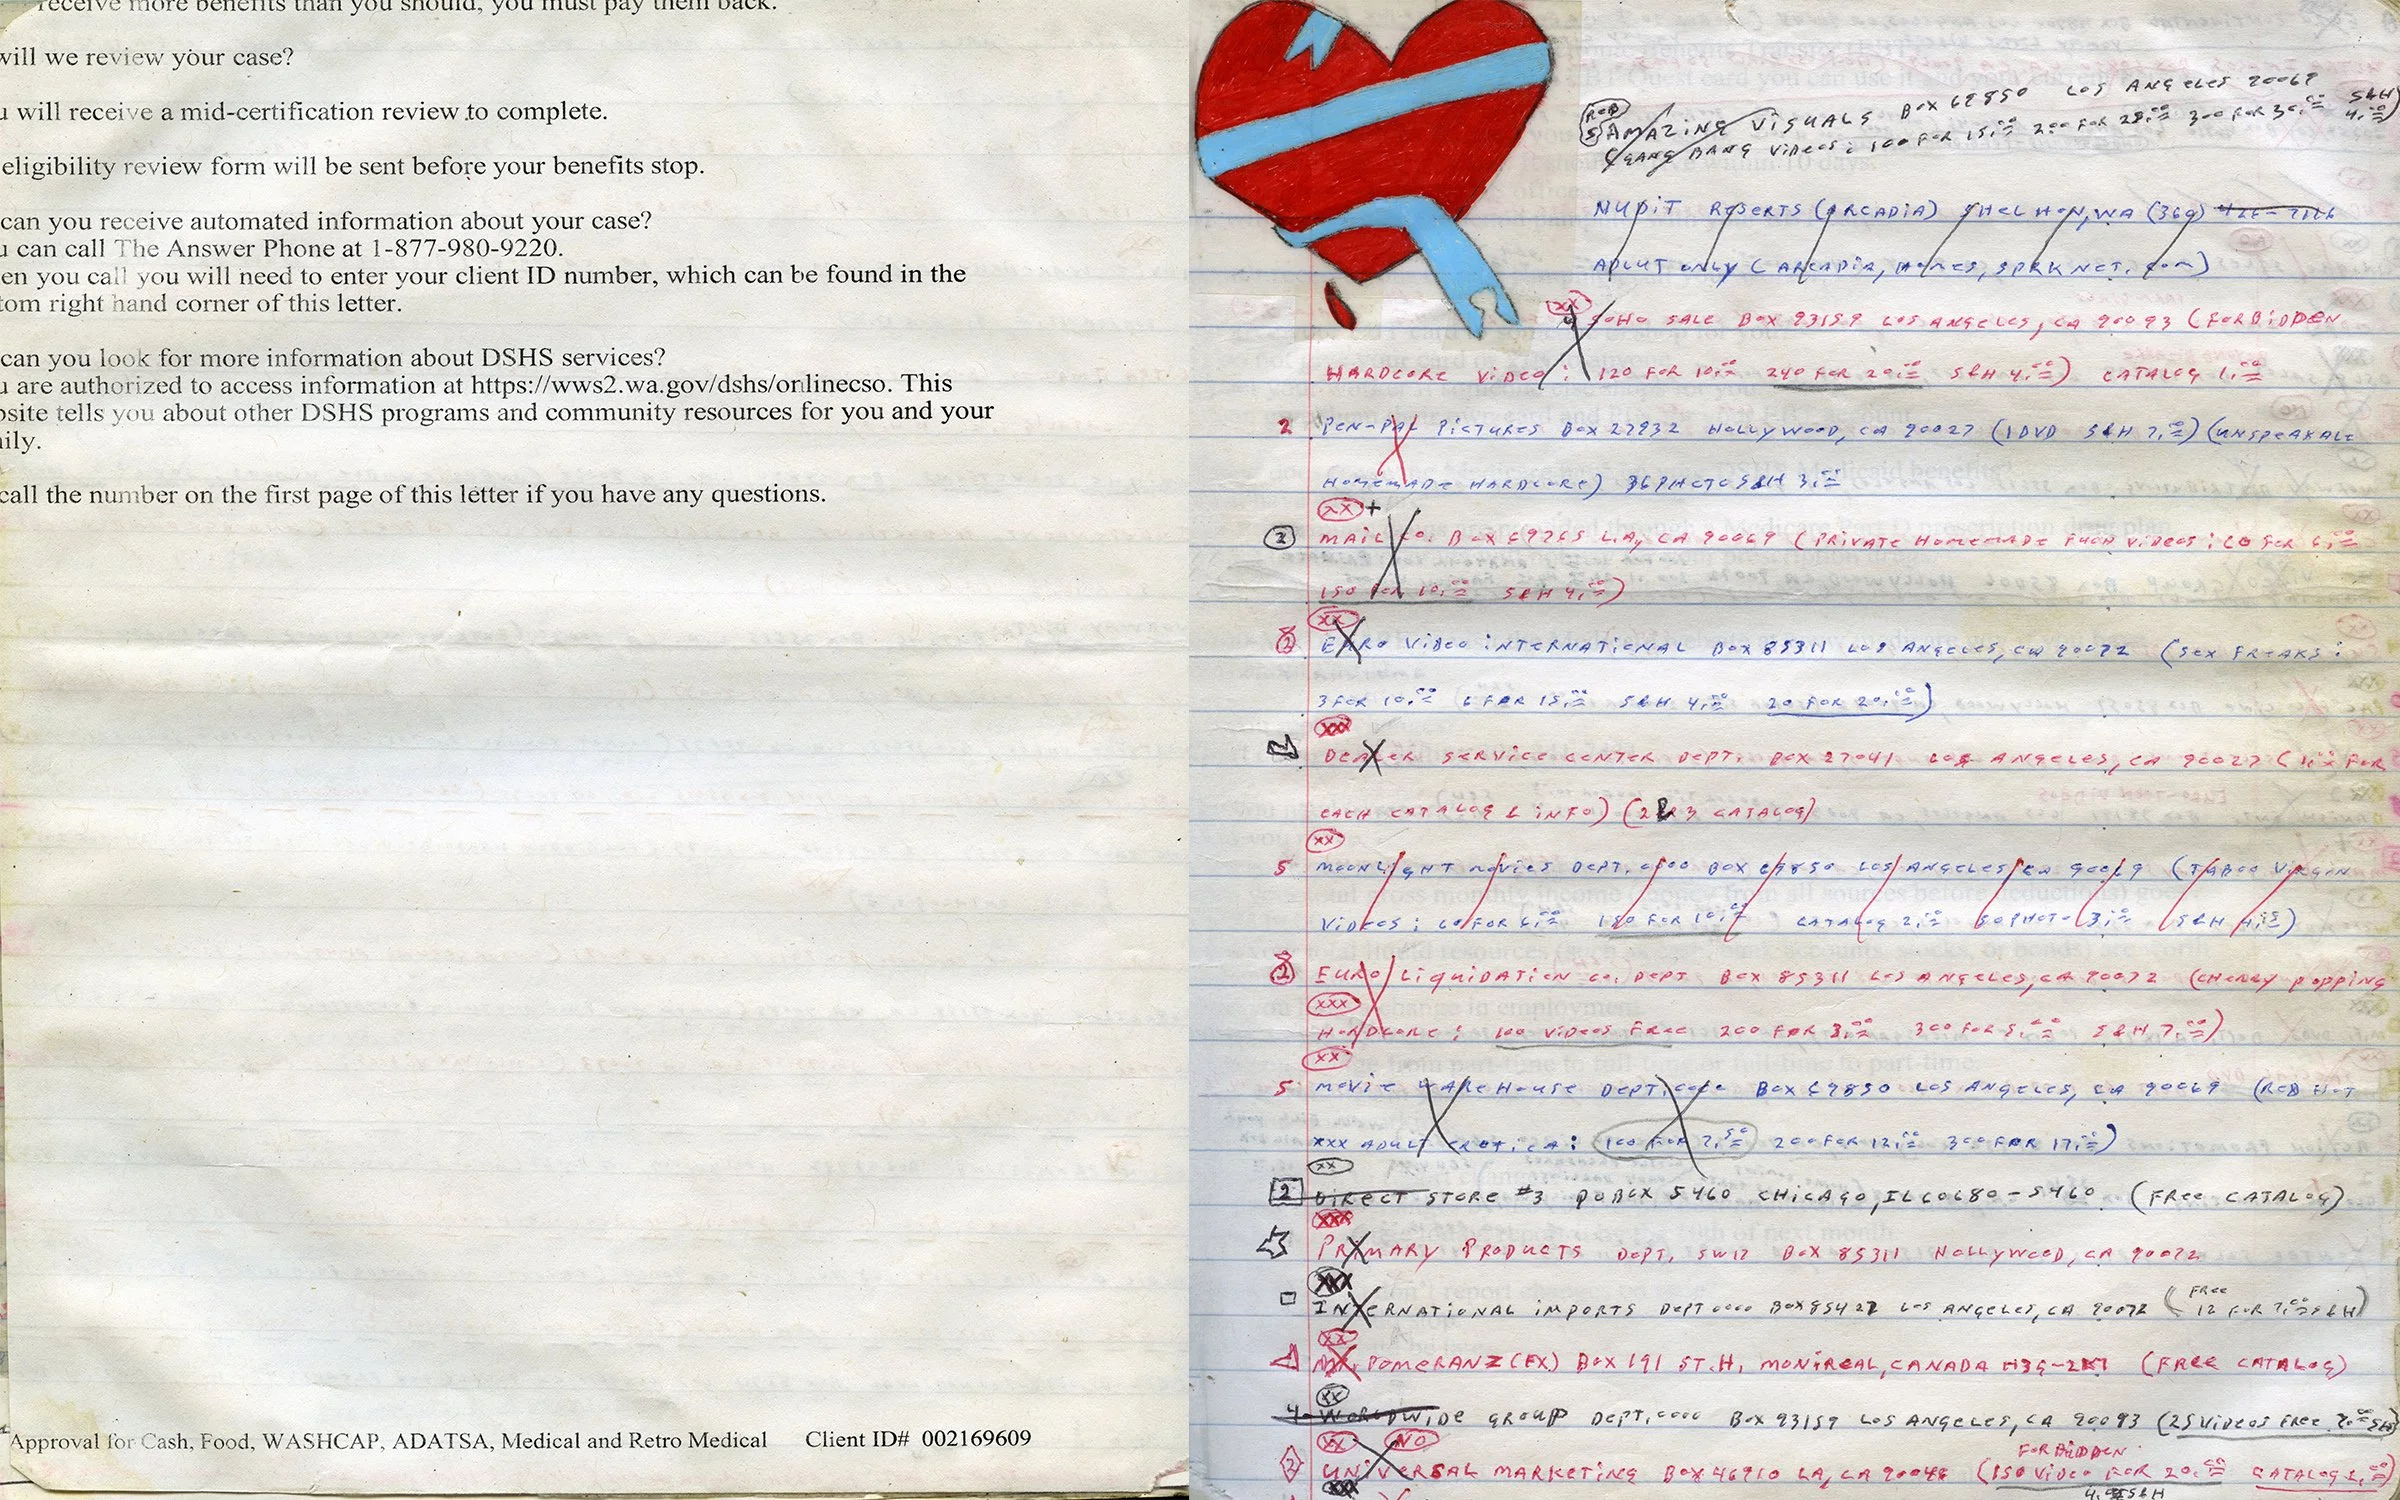 receive more benefits than you should, you must pay them back.
will we review your case?
u will receive a mid-certification review to complete.
eligibility review form will be sent before your benefits stop.
can you receive automated information about your case?
u can call The Answer Phone at 1-877-980-9220.
en you call you will need to enter your client ID number, which can be found in the
tom right hand corner of this letter.
can you look for more information about DSHS services?
u are authorized to access information at https://wws2.wa.gov/dshs/onlinecso. This
bsite tells you about other DSHS programs and community resources for you and your
ily.
call the number on the first page of this letter if you have any questions.
Approval for Cash, Food, WASHCAP, ADATSA, Medical and Retro Medical Client ID# 002169609
AMAZING VISUALS BOX 69850 LOS ANGELES 90069 S&H
(GANG BANG VIDEOS: 100 FOR 15.00 200 FOR 28.00 300 FOR 30.00 4.00)
NUDIT ROBERTS (ARCADIA) SHELTON, WA (360)
ADLUT ONLY (ARCADIA, HOMES, SPRKNET. COM)
XX
SOHO SALE BOX 93159 LOS ANGELES, CA 90093 (FORBIDDEN
HARDCORE VIDEO: 120 FOR 10.00 240 FOR 20.00 S&H 4.00) CATALOG 1.00
2 PEN-PAL PICTURES BOX 27932 HOLLYWOOD, CA 90027 (1 DVD S&H 7.00) (UNSPEAKALE
HOMEMADE HARDCORE) 36 PHOTO S&H 3.00
XX +
2 MAIL CO. BOX 69265 L.A, CA 90069 (PRIVATE HOMEMADE VIDEOS: 60 FOR 6.00
150 FOR 10.00 S&H 4.00)
XX
2 EURO VIDEO INTERNATIONAL BOX 85311 LOS ANGELES, CA 90072 (SEX FREAKS:
3 FOR 10.00 6 FOR 15.00 S&H 4.00 20 FOR 20.00)
XXX
DEALER SERVICE CENTER DEPT. BOX 27041 LOS ANGELES, CA 90027 (1.00 FOR
EACH CATALOG & INFO) (2 & 3 CATALOG)
XX
5 MOONLIGHT MOVIES DEPT. 0000 BOX 69850 LOS ANGELES, CA 90069 (TABOO VIRGIN
VIDEOS: 60 FOR 6.00 150 FOR 10.00 CATALOG 2.00 50 PHOTO 3.00 S&H 4.00)
2 EURO LIQUIDATION CO. DEPT BOX 85311 LOS ANGELES, CA 90072 (CHERRY POPPING
XXX
HARDCORE: 100 VIDEOS FREE 200 FOR 3.00 300 FOR 5.00 S&H 7.00)
XX
5 MOVIE WAREHOUSE DEPT. 0000 BOX 69850 LOS ANGELES, CA 90069 (RED HOT
XXX ADULT EROTICA: 100 FOR 7.50 200 FOR 12.00 300 FOR 17.00)
XX
2 DIRECT STORE #3 PO BOX 5460 CHICAGO, IL 60680-5460 (FREE CATALOG)
XXX
PRIMARY PRODUCTS DEPT. SW12 BOX 85311 HOLLYWOOD, CA 90072
XXX
INTERNATIONAL IMPORTS DEPT 0000 BOX 85427 LOS ANGELES, CA 90072 (FREE 12 FOR 7.00 S&H)
XX
POMERANZ (EX) BOX 191 ST.H, MONTREAL, CANADA H3G-2K7 (FREE CATALOG)
XX
4 WORLDWIDE GROUP DEPT. 0000 BOX 93159 LOS ANGELES, CA 90093 (25 VIDEOS FREE 7.00 S&H)
XX NO FORBIDDEN
2 UNIVERSAL MARKETING BOX 46710 LA, CA 90046 (150 VIDEO FOR 20.00 CATALOG 1.00)
XXX S&H